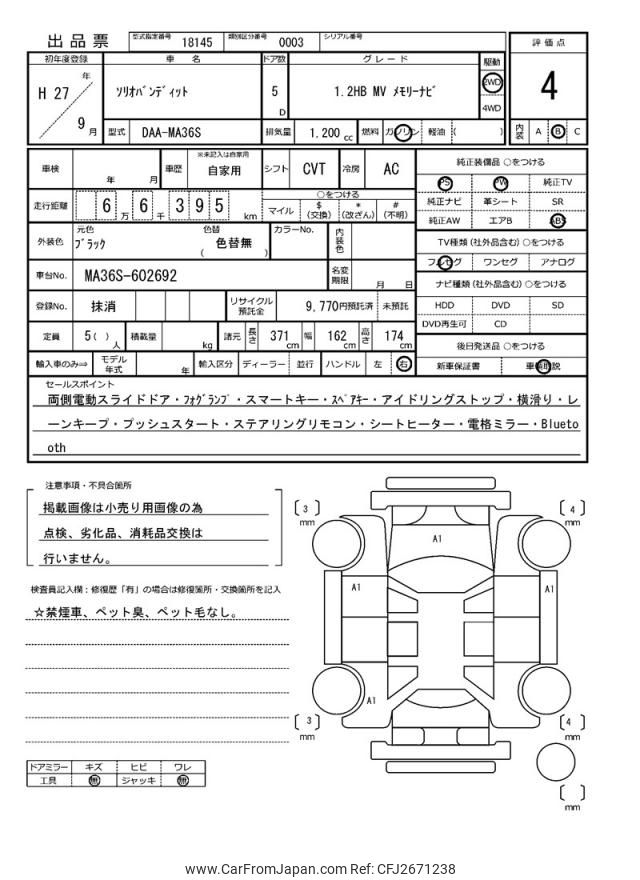 出品票 型式指定番号 18145 類別区分番号 0003 シリアル番号
評価点
4
初年度登録 車名 ドア数 グレード 駆動
H 27 年 9 月
ソリオバンディット 5 D 1.2HB MV メモリーナビ 2WD 4WD
型式 DAA-MA36S 排気量 1,200 cc 燃料 ガソリン 軽油 ( )
内装 A B C
車検 年 月 車歴 ※未記入は自家用 自家用 シフト CVT 冷房 AC
走行距離 6 万 6 千 3 9 5 km
○をつける
マイル $(交換) *(改ざん) #(不明)
外装色 元色 ブラック 色替 色替無 ( ) カラーNo. 内装色
車台No. MA36S-602692 名変期限 月 日
登録No. 抹消 リサイクル預託金 9,770円預託済 未預託
定員 5( )人 積載量 kg 諸元 長さ 371 cm 幅 162 cm 高さ 174 cm
輸入車のみ⇒ モデル年式 年 輸入区分 ディーラー 並行 ハンドル 左 右
純正装備品 ○をつける
PS PW 純正TV
純正ナビ 革シート SR
純正AW エアB ABS
TV種類(社外品含む) ○をつける
フルセグ ワンセグ アナログ
ナビ種類(社外品含む) ○をつける
HDD DVD SD
DVD再生可 CD
後日発送品 ○をつける
新車保証書 車輌取説
セールスポイント
両側電動スライドドア・フォグランプ・スマートキー・スペアキー・アイドリングストップ・横滑り・レ
ーンキープ・プッシュスタート・ステアリングリモコン・シートヒーター・電格ミラー・Blueto
oth
注意事項・不具合箇所
掲載画像は小売り用画像の為
点検、劣化品、消耗品交換は
行いません。
検査員記入欄：修復歴「有」の場合は修復箇所・交換箇所を記入
☆禁煙車、ペット臭、ペット毛なし。
ドアミラー キズ ヒビ ワレ
工具 無 ジャッキ 無
[ 3 ] mm
[ 4 ] mm
A1
A1
A1
A1
[ 3 ] mm
[ 4 ] mm
[ ] mm
www.CarFromJapan.com Ref: CFJ2671238